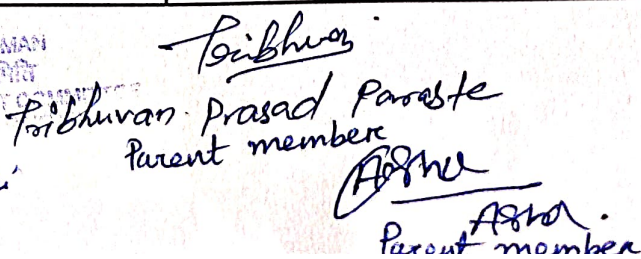 MAN
Tribhuvan
Tribhuvan. Prasad Paraste
Parent membere
Asha
Asha.
Parent member